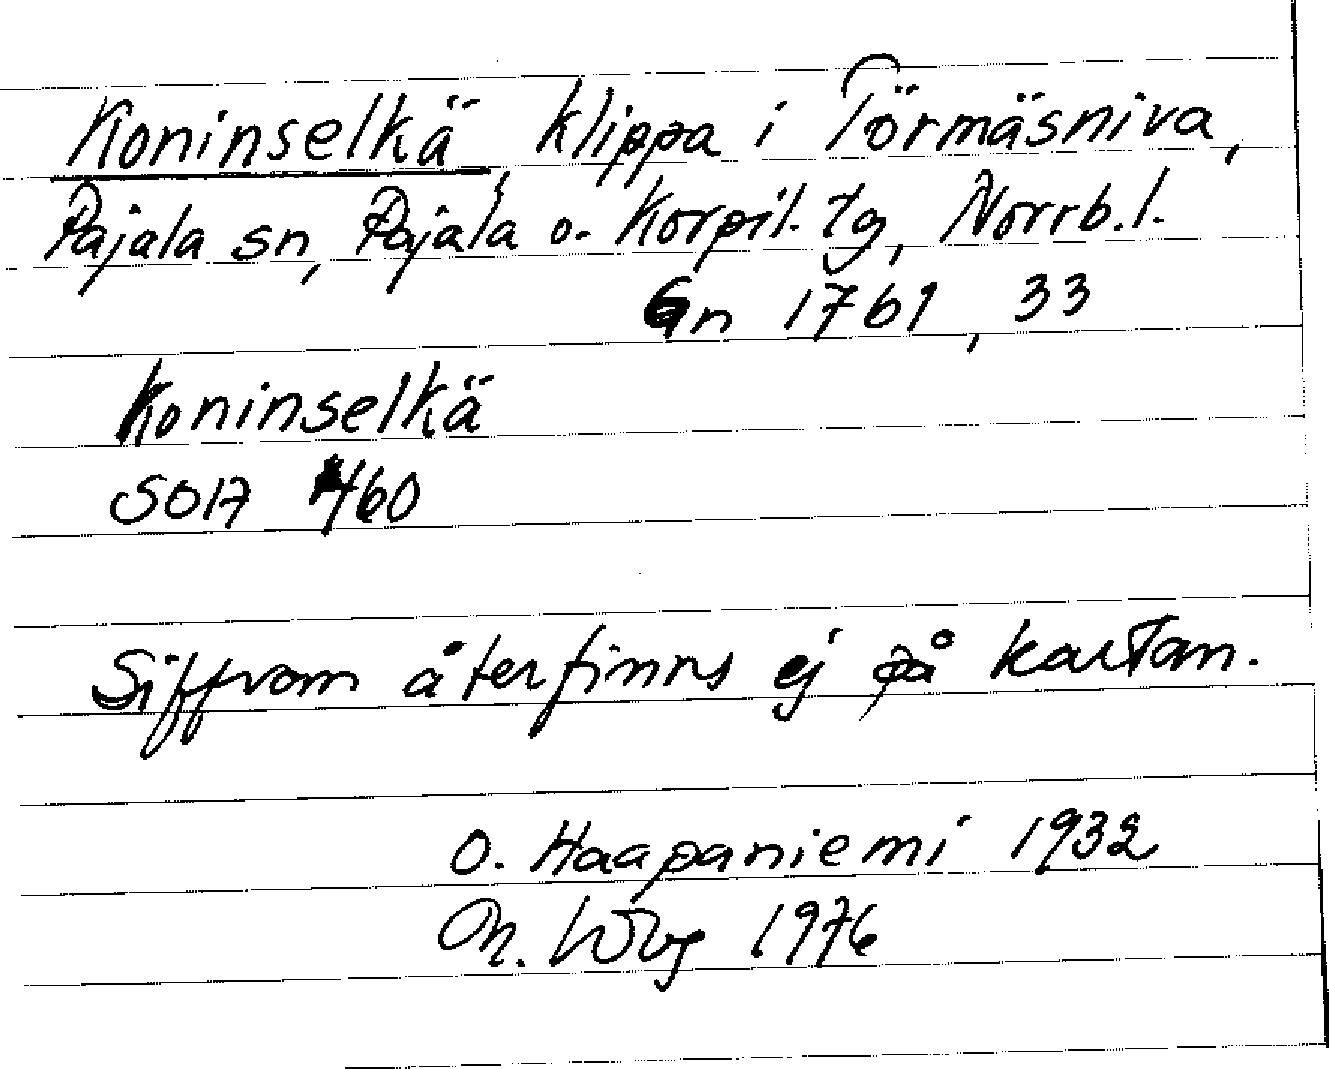 Koninselkä, klippa i Törmäsniva,
Pajala sn, Pajala o. Korpil. tg, Norrb. l.
Gn 1761, 33
Koninselkä
SOIA 460
Siffran återfinns ej på kartan.
O. Haapaniemi 1932
1976